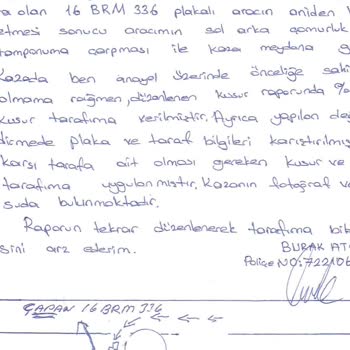 a olan 16 BRM 336 plakalı aracın aniden
etmesi sonucu aracımın sol arka çamurluk
tamponuma çarpması ile kaza meydana g
Kazada ben anayol üzerinde önceliğe sahi
olmama rağmen, düzenlenen kusur raporunda %
kusur tarafıma verilmiştir. Ayrıca yapılan değ
dirmede plaka ve taraf bilgileri karıştırılmış
karşı tarafa ait olması gereken kusur ve
tarafıma uygulanmıştır. Kazanın fotoğraf ve
suda bulunmaktadır.
Raporun tekrar düzenlenerek tarafıma bil
sini arz ederim.
BURAK AT
Poliçe NO: 722106
ÇARPAN 16 BRM 336